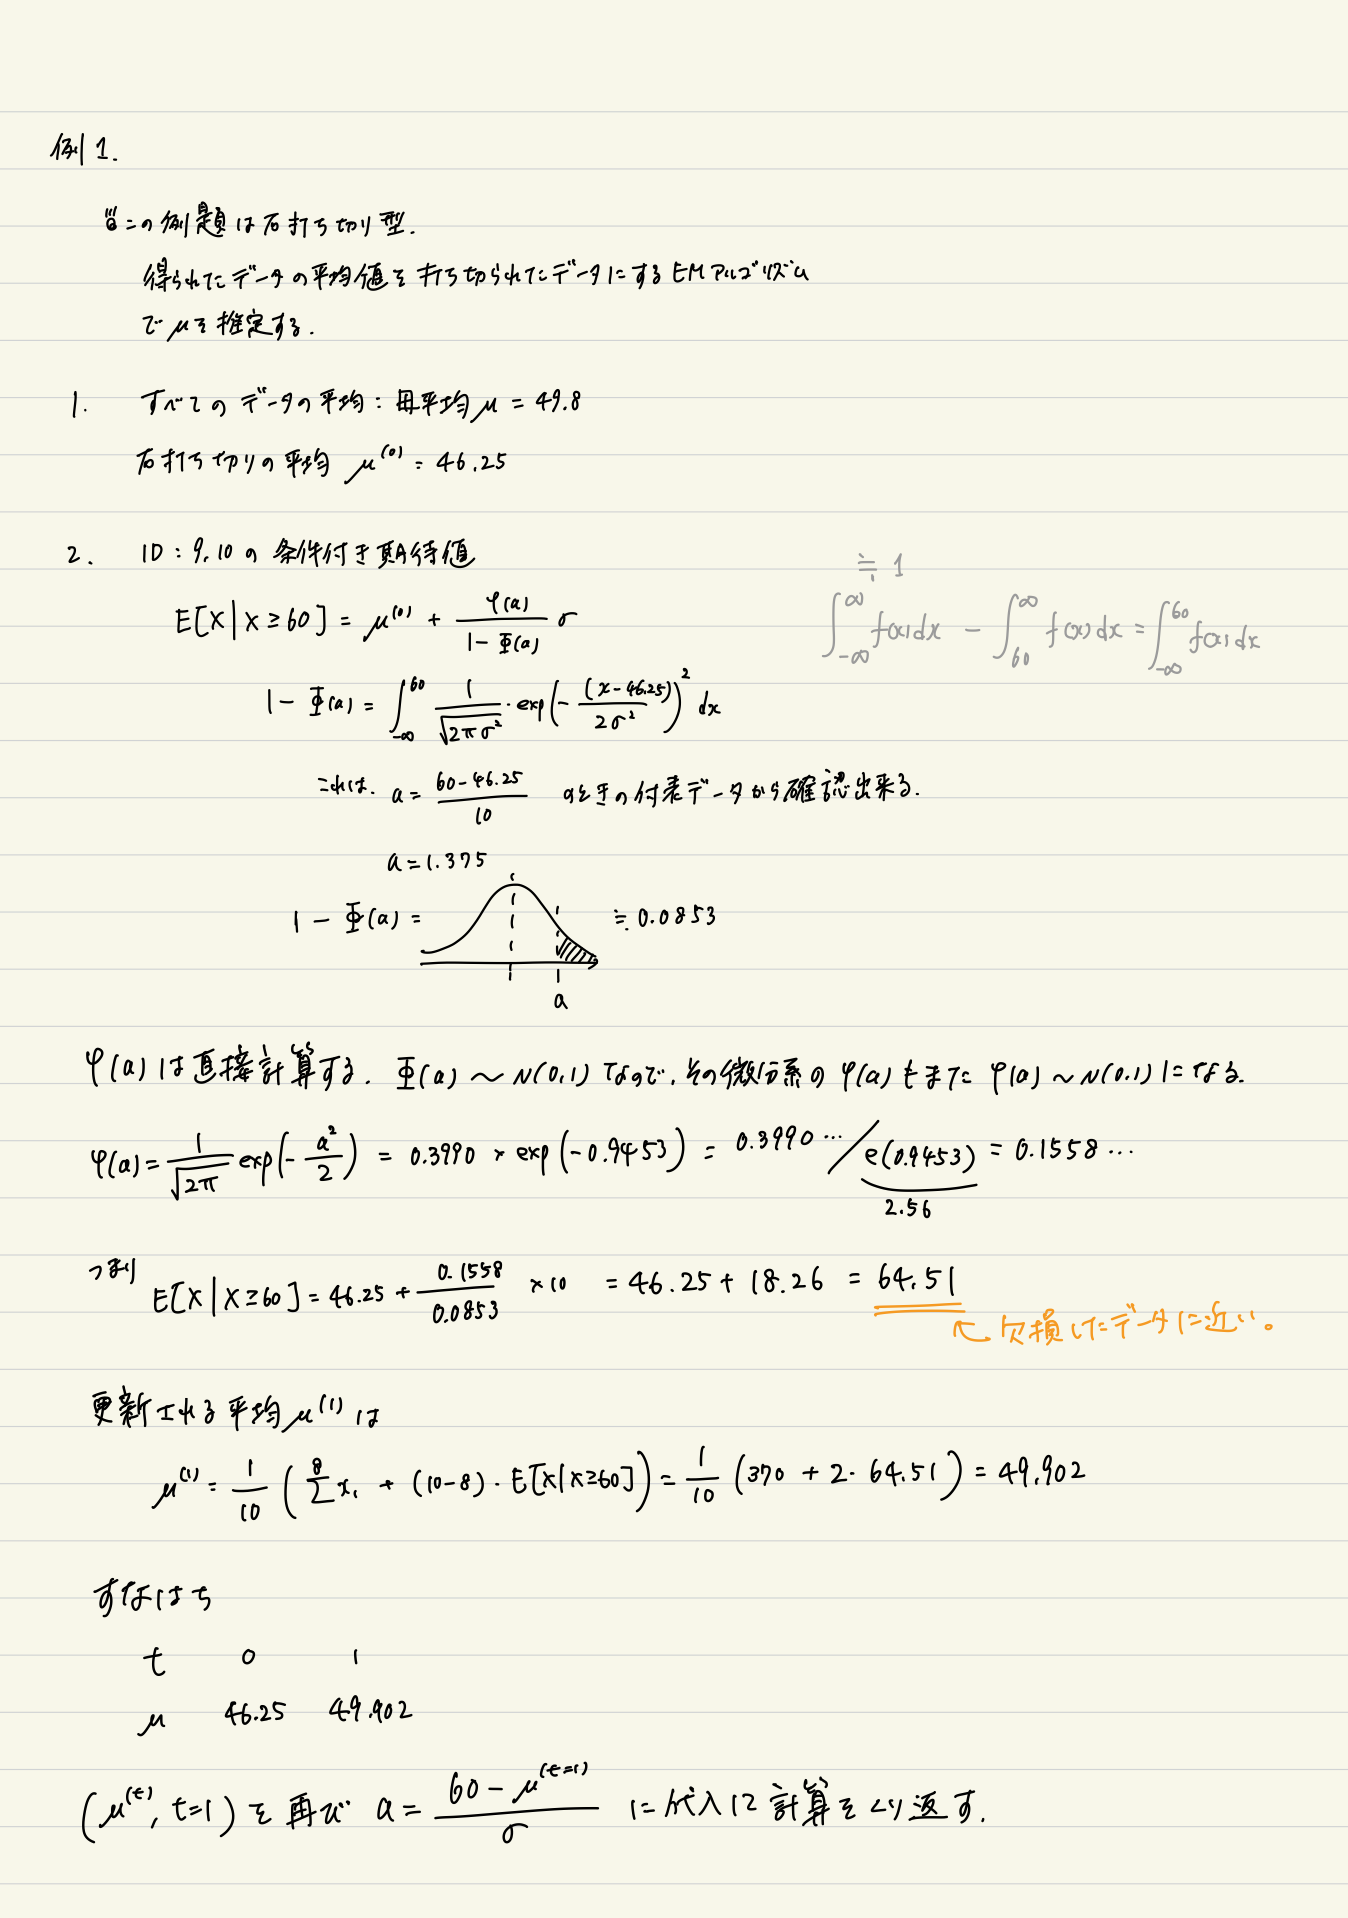 例1.
この例題は右打ち切り型.
得られたデータの平均値を打ち切られたデータにするEMアルゴリズム
でμを推定する.
1. すべてのデータの平均：母平均μ = 49.8
右打ち切りの平均 μ^(0) = 46.25
2. ID : 9,10の条件付き期待値
E[X|X≥60] = μ^(0) + φ(a)/(1-Φ(a)) σ
≒ 1
∫_{-∞}^{∞} f(x)dx - ∫_{60}^{∞} f(x)dx = ∫_{-∞}^{60} f(x)dx
1 - Φ(a) = ∫_{-∞}^{60} 1/√(2πσ²) · exp(- (x-46.25)/(2σ²))² dx
これは. a = (60-46.25)/10 のときの付表データから確認出来る.
a = 1.375
1 - Φ(a) = ≒ 0.0853
a
φ(a)は直接計算する. Φ(a) ~ N(0,1) なので, その微分系のφ(a)もまた φ(a) ~ N(0,1)になる.
φ(a) = 1/√(2π) exp(- a²/2) = 0.3990 × exp(-0.9453) = 0.3990… / e(0.9453) = 0.1558…
2.56
つまり E[X|X≥60] = 46.25 + 0.1558/0.0853 ×10 = 46.25 + 18.26 = 64.51
↖ 欠損したデータに近い。
更新される平均μ^(1)は
μ^(1) = 1/10 (Σ^8 x_i + (10-8) · E[X|X≥60]) = 1/10 (370 + 2 · 64.51) = 49.902
すなはち
t 0 1
μ 46.25 49.902
(μ^(t), t=1)を再び a = (60 - μ^(t=1))/σ に代入に計算をくり返す.